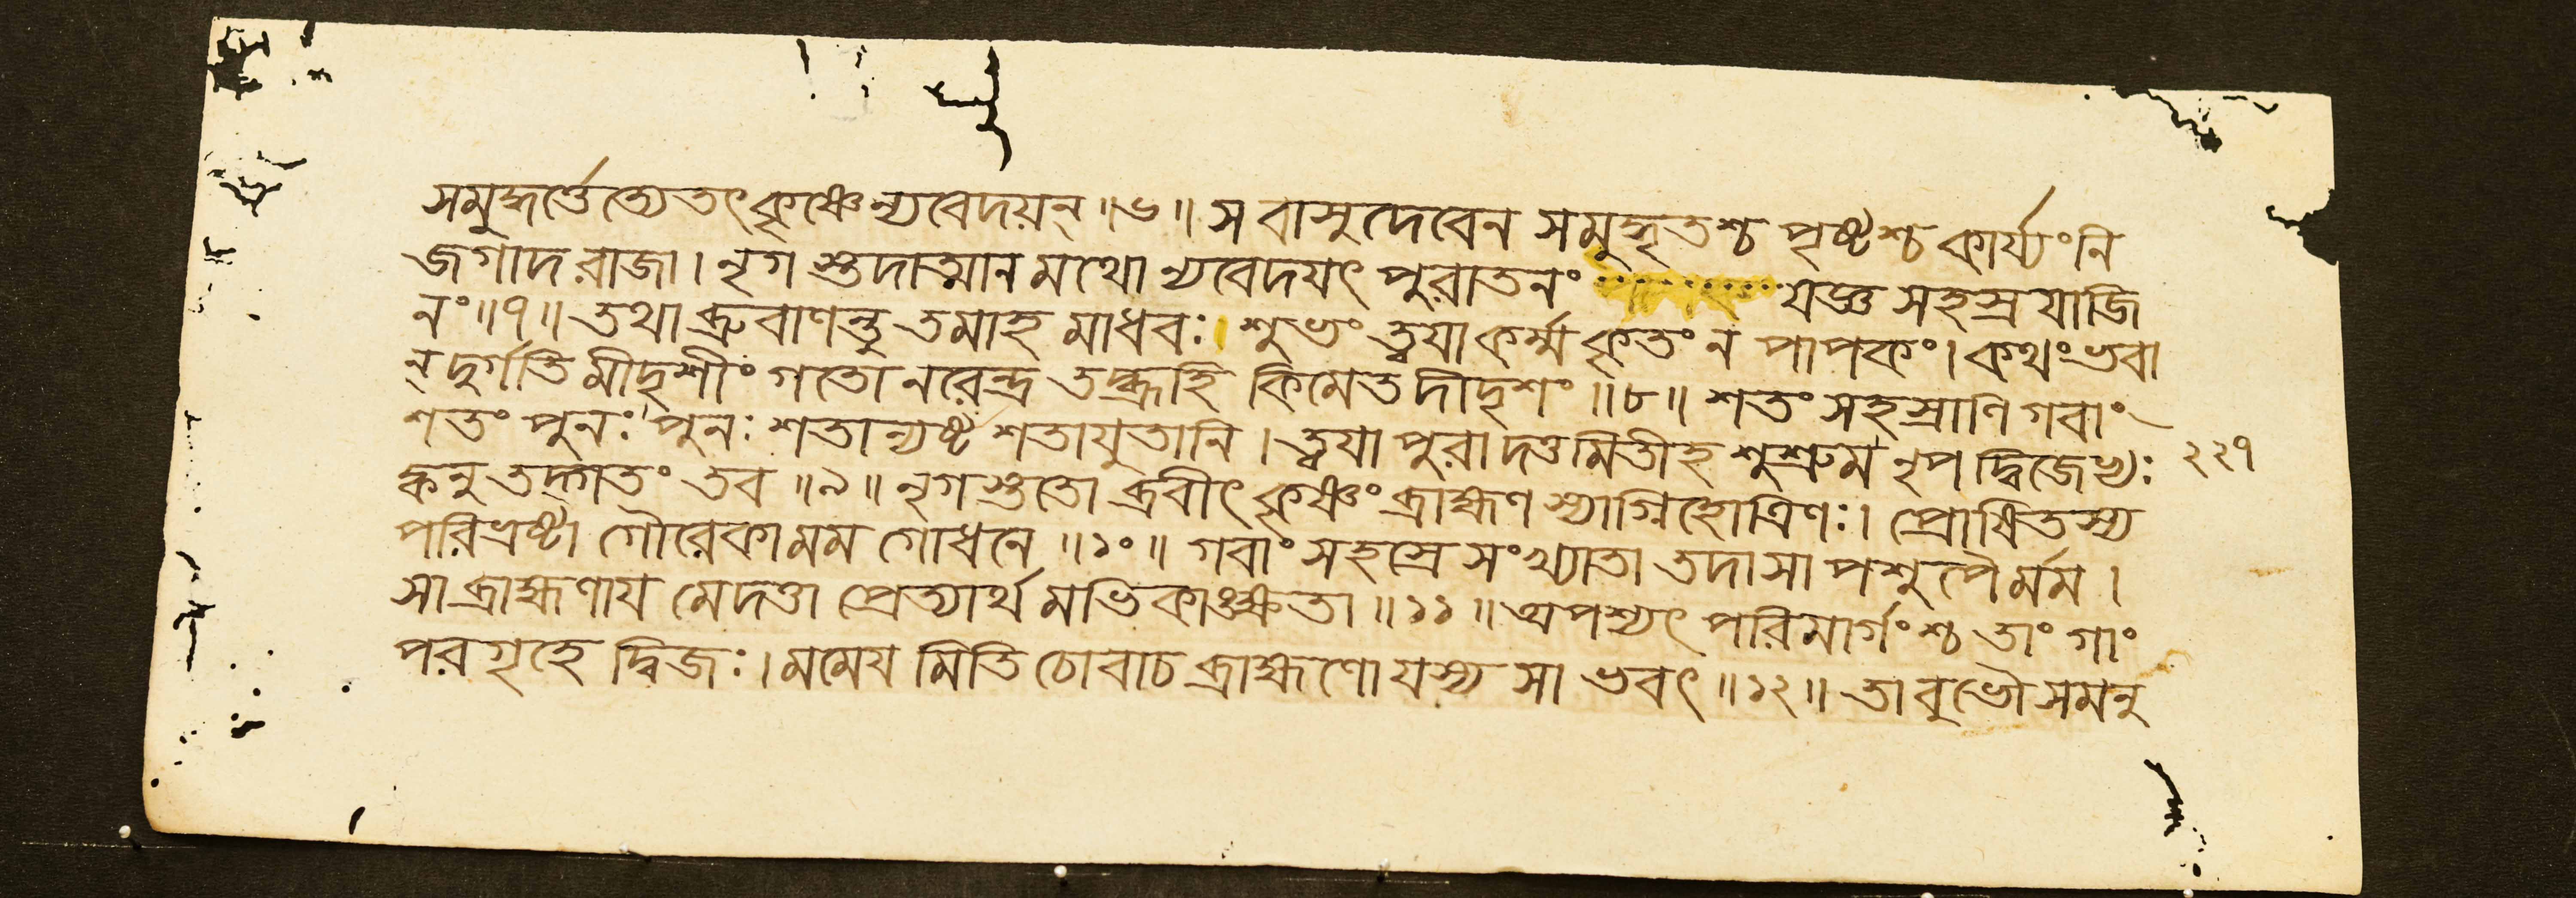 সমুদ্ধর্ত্তেত্যেতৎ কৃষ্ণে ন্যবেদয়ন্॥৬॥ স বাসুদেবেন সমুদ্ধৃতশ্চ পৃষ্টশ্চ কার্য্যং নি
জগাদ রাজা। নৃগ স্তদাত্মান মথো ন্যবেদযৎ পুরাতনং যজ্ঞ সহস্র যাজি
নং॥৭॥ তথা ব্রুবাণন্তু তমাহ মাধবঃ। শুভং ত্বযা কর্ম্ম কৃতং ন পাপকং। কথং ভবা
ন্ দুর্গতি মীদৃশীং গতো নরেন্দ্র তদ্ব্রূহি কিমেত দীদৃশং॥৮॥ শতং সহস্রাণি গবাং
শতং পুনঃ পুনঃ শতান্যষ্ট শতাযুতানি। ত্বযা পুরা দত্তমিতীহ শুশ্রুম নৃপ দ্বিজেভ্যঃ ২২৭
ক্বনু তদ্গতং তব॥৯॥ নৃগ স্ততো ব্রবীৎ কৃষ্ণং ব্রাহ্মণ স্যাগ্নিহোত্রিণঃ। প্রোষিতস্য
পরিভ্রষ্টা গৌরেকা মম গোধনে॥১০॥ গবাং সহস্রে সংখ্যাতা তদা সা পশুপৈর্মম।
সা ব্রাহ্মণায মে দত্তা প্রেত্যার্থ মভিকাঙ্ক্ষতা॥১১॥ অপশ্যৎ পরিমার্গংশ্চ তাং গাং
পরগৃহে দ্বিজঃ। মমেয মিতি চোবাচ ব্রাহ্মণো যস্য সা ভবৎ॥১২॥ তাবুভৌ সমনু